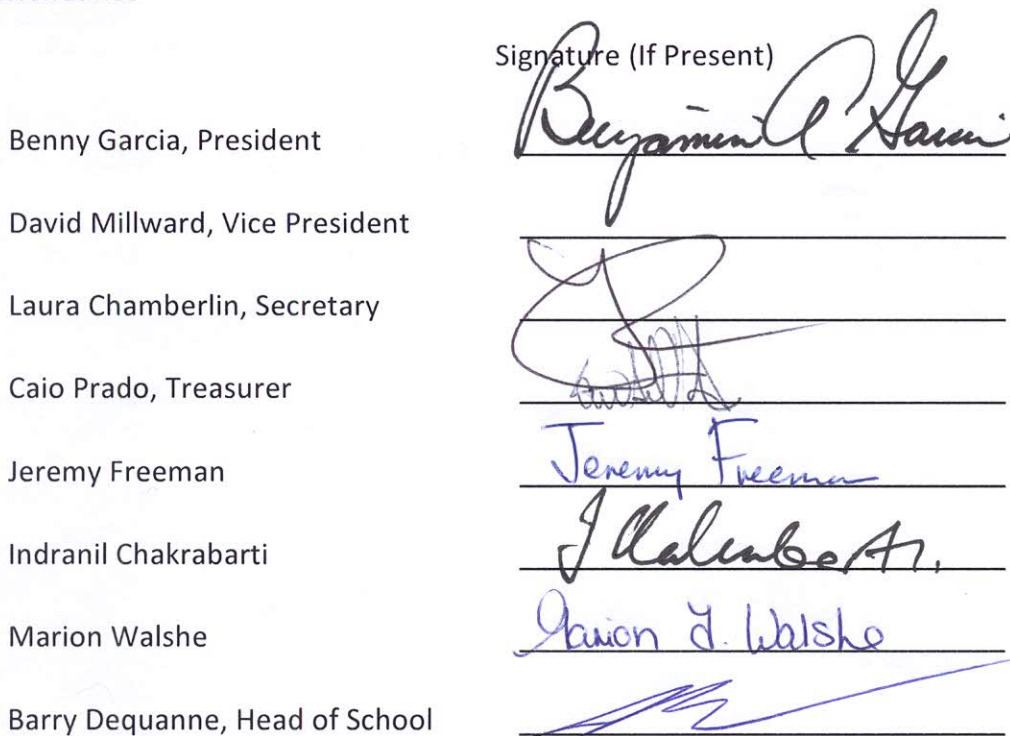 Signature (If Present)
Benny Garcia, President Benjamin A Garcia
David Millward, Vice President
Laura Chamberlin, Secretary
Caio Prado, Treasurer
Jeremy Freeman Jeremy Freeman
Indranil Chakrabarti
Marion Walshe Marion J. Walshe
Barry Dequanne, Head of School